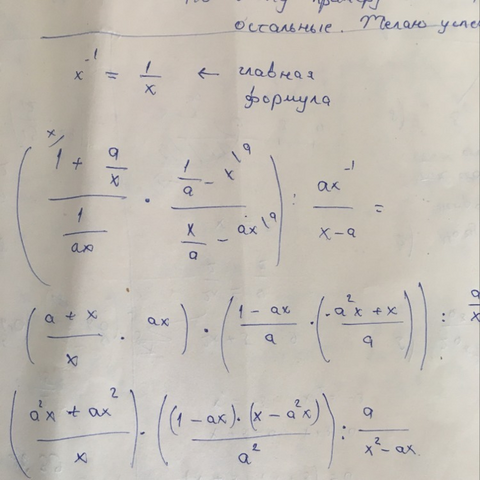 остальные. Желаю
x^-1 = 1/x ← главная
формула
( (1^{\x} + a/x) / (1/ax) · (1/a - x^{\a}) / (x/a - ax^{\a}) ) : ax^-1 / (x-a) =
( (a + x)/x · ax ) · ( (1 - ax)/a · ( (-a^2x + x)/a ) ) : a/x
( (a^2x + ax^2)/x ) · ( ((1 - ax)·(x - a^2x))/a^2 ) : a/(x^2 - ax)